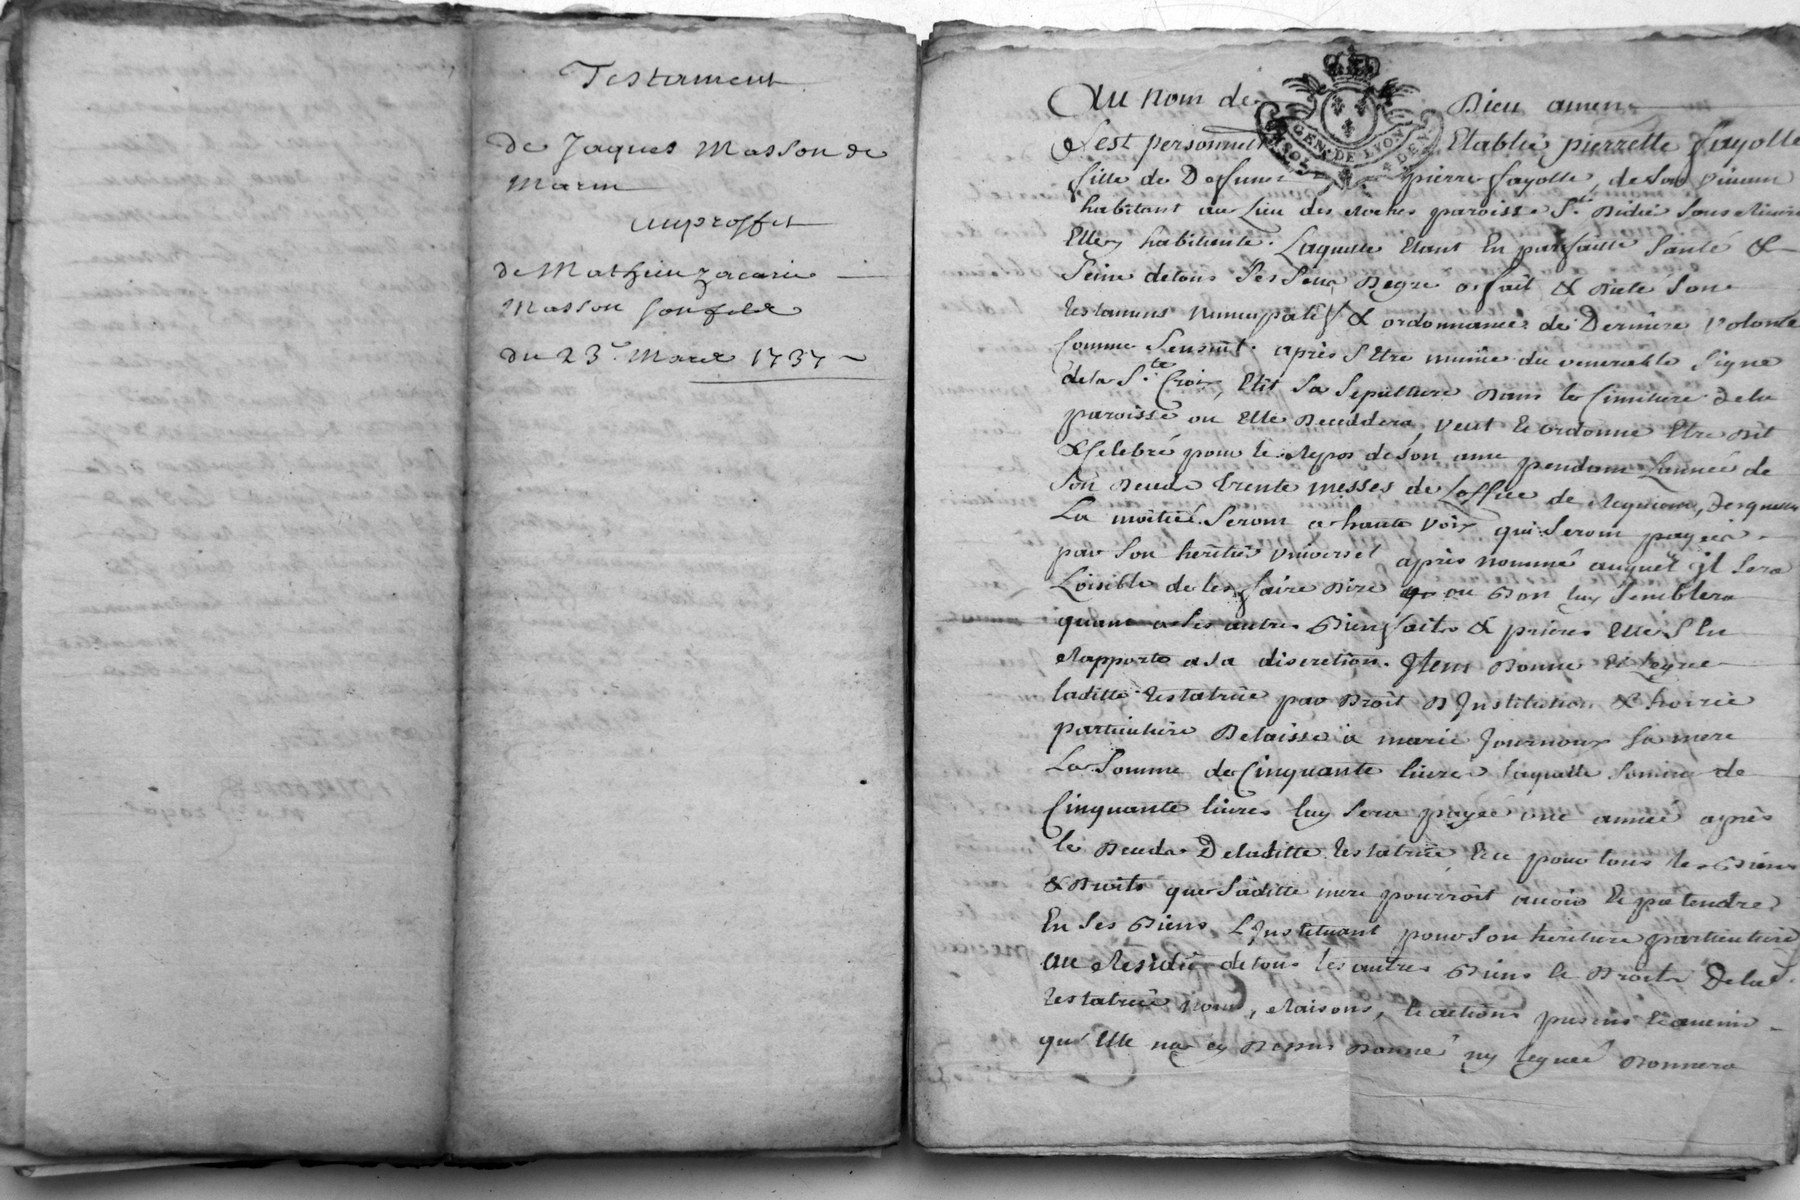 Testament
de Jaques Masson de
Marin
auproffit
de Mathieu zacarie
Masson son fils
du 23.e Mars 1737
Au nom de Dieu amen
GEN. DE LYON
SOL DE
S'est personnel Etablie pierrette fayolle
fille de Deffunt pierre fayolle, de son vivant
habitant au Lieu des Roches paroisse St. Didié sous
Elle habitante. Laquelle Etant En parfaitte Santé &
Seine de tous Ses Sens De gré a fait & Dicté Son
testament nuncupatif & ordonnance de Derniere volonté
Comme S'ensuit. après S'Etre munie du venerable Signe
de la Ste. Croix, Elit Sa Sepulture Dans le Cimitiere de la
paroisse ou Elle Deceddera, veut et ordonne Etre Dit
& Celebré pour le Repos de Son ame pendant L'année de
Son Deceds trente messes de L'office de Requiem, Desquelles
La moitié Seront a haute voix qui Seront payées
par Son heritié universel après nommé auquel il Sera
Loisible de les faire Dire ou Bon luy Semblera
quant a Ses autres Bienfaits & prieres Elle S'En
Rapporte a Sa discretion. Item Donne et Legue
laditte testatrice par Droit D'Institution & hoirie
particuliere Delaisse à marie Journoux Sa mere
La Somme de Cinquante livres laquelle Somme de
Cinquante livres luy Sera payée une année après
le Deceds De laditte testatrice Et ce pour tous les Biens
& Droits que Saditte mere pourroit avoir Et pretendre
En Ses Biens L'Instituant pour Son heritiere particuliere
Au Residu de tous les autres Biens et Droits De la
testatrice noms, Raisons, et actions presens et avenir
qu'Elle n'a cy Dessus Donné ny legué Donnera